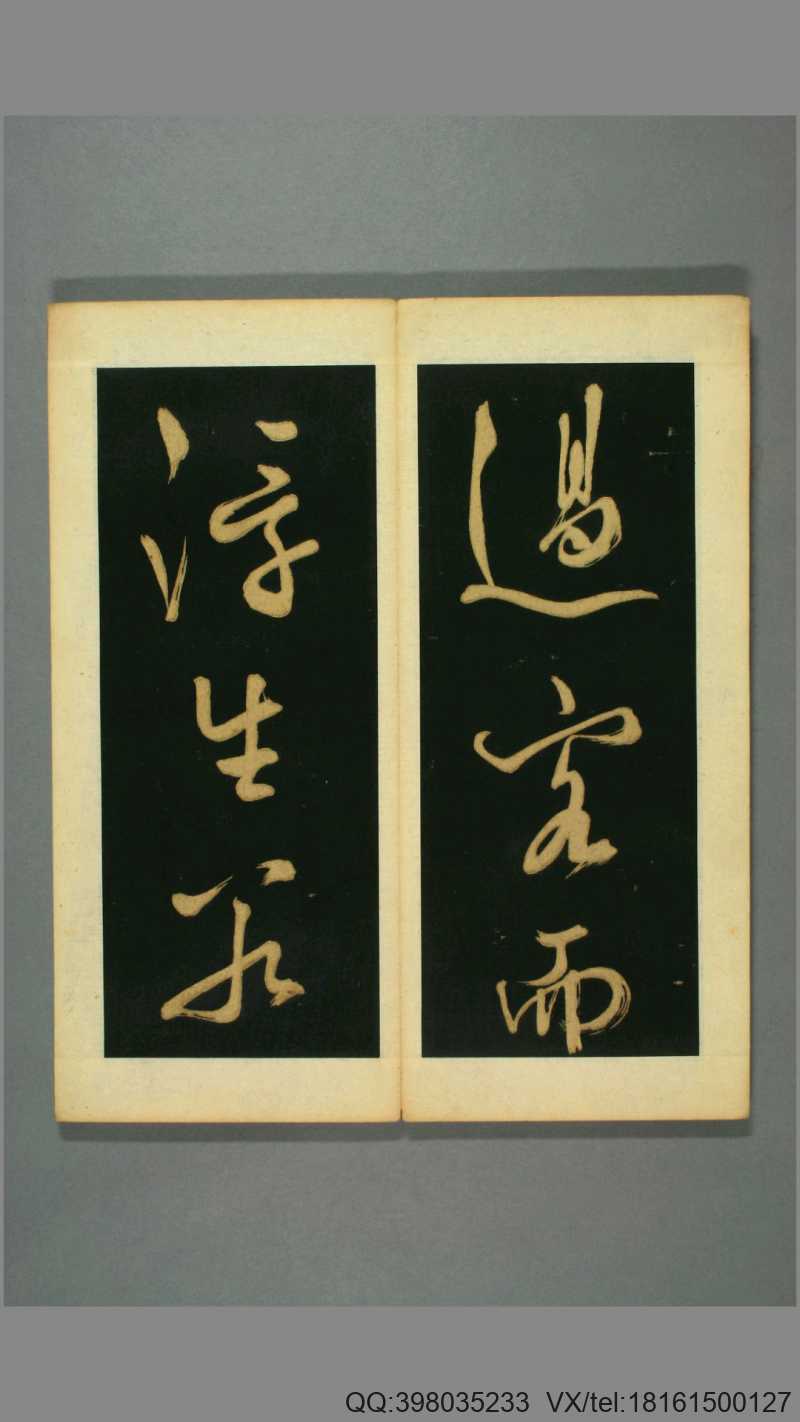 過客而
浮生若
QQ:398035233 VX/tel:18161500127